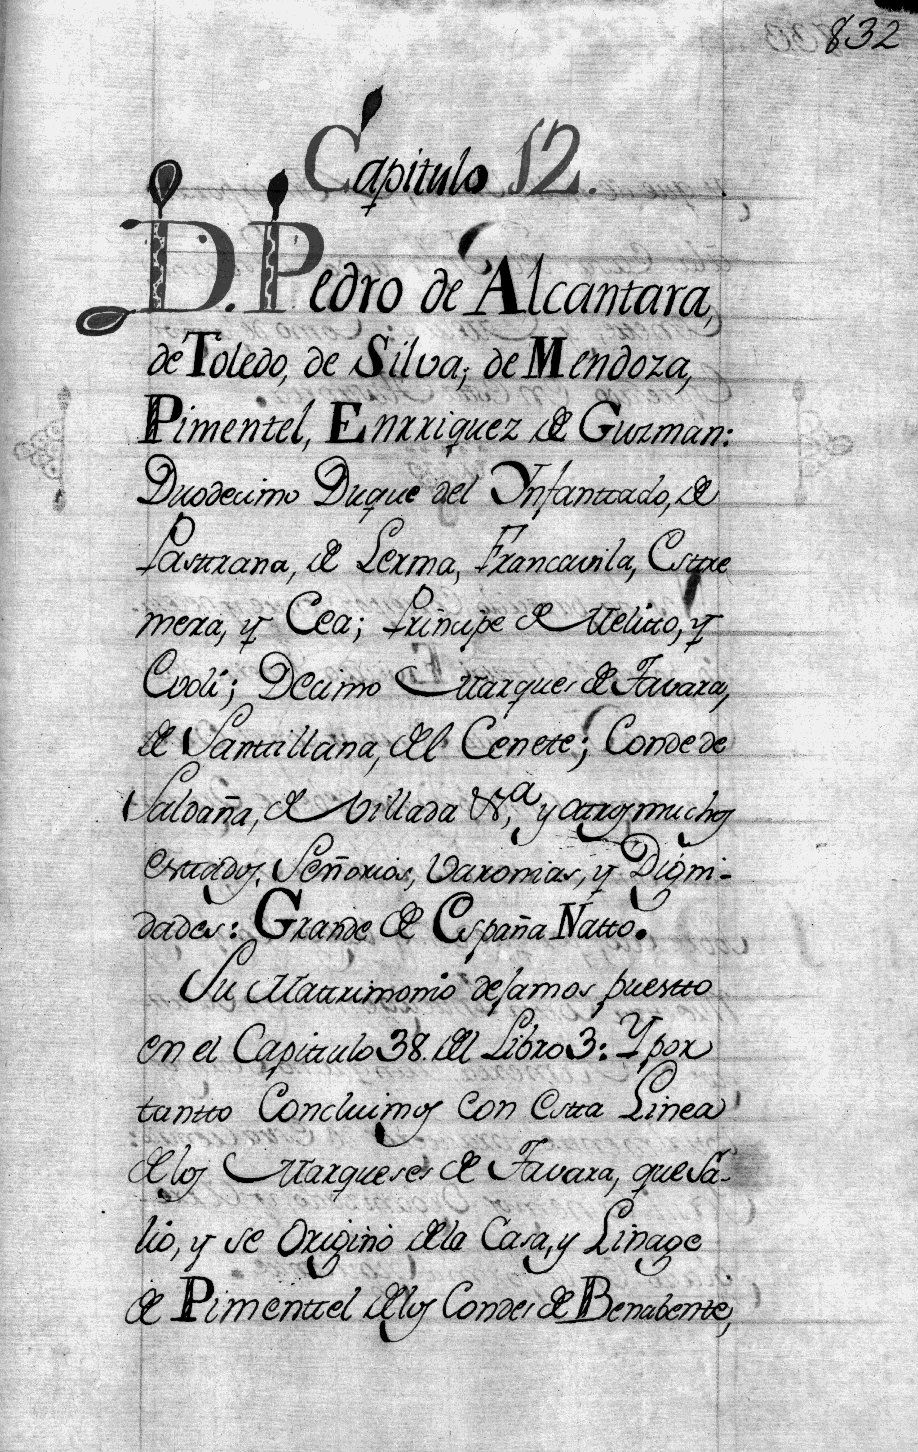 832
Capitulo 12.
D. Pedro de Alcantara,
de Toledo, de Silva, de Mendoza,
Pimentel, Enrriquez de Guzman:
Duodecimo Duque del Ynfanttado, de
Pasttrana, de Lerma, Francavila, Esttre
mera, y Cea; Principe de Melitto, y
Evoli; Decimo Marques de Tavara,
de Santillana, del Cenete; Conde de
Saldaña, de Villada &.ª y ottros muchos
esttados, Señorios, Varonias, y Digni-
dades: Grande de España Natto.
Su Mattrimonio dejamos puestto
en el Capittulo 38. del Libro 3: Y por
tantto Concluimos con estta Linea
de los Marqueses de Tavara, que Sa-
lio, y se Origino de la Casa, y Linage
de Pimenttel de los Condes de Benabente,